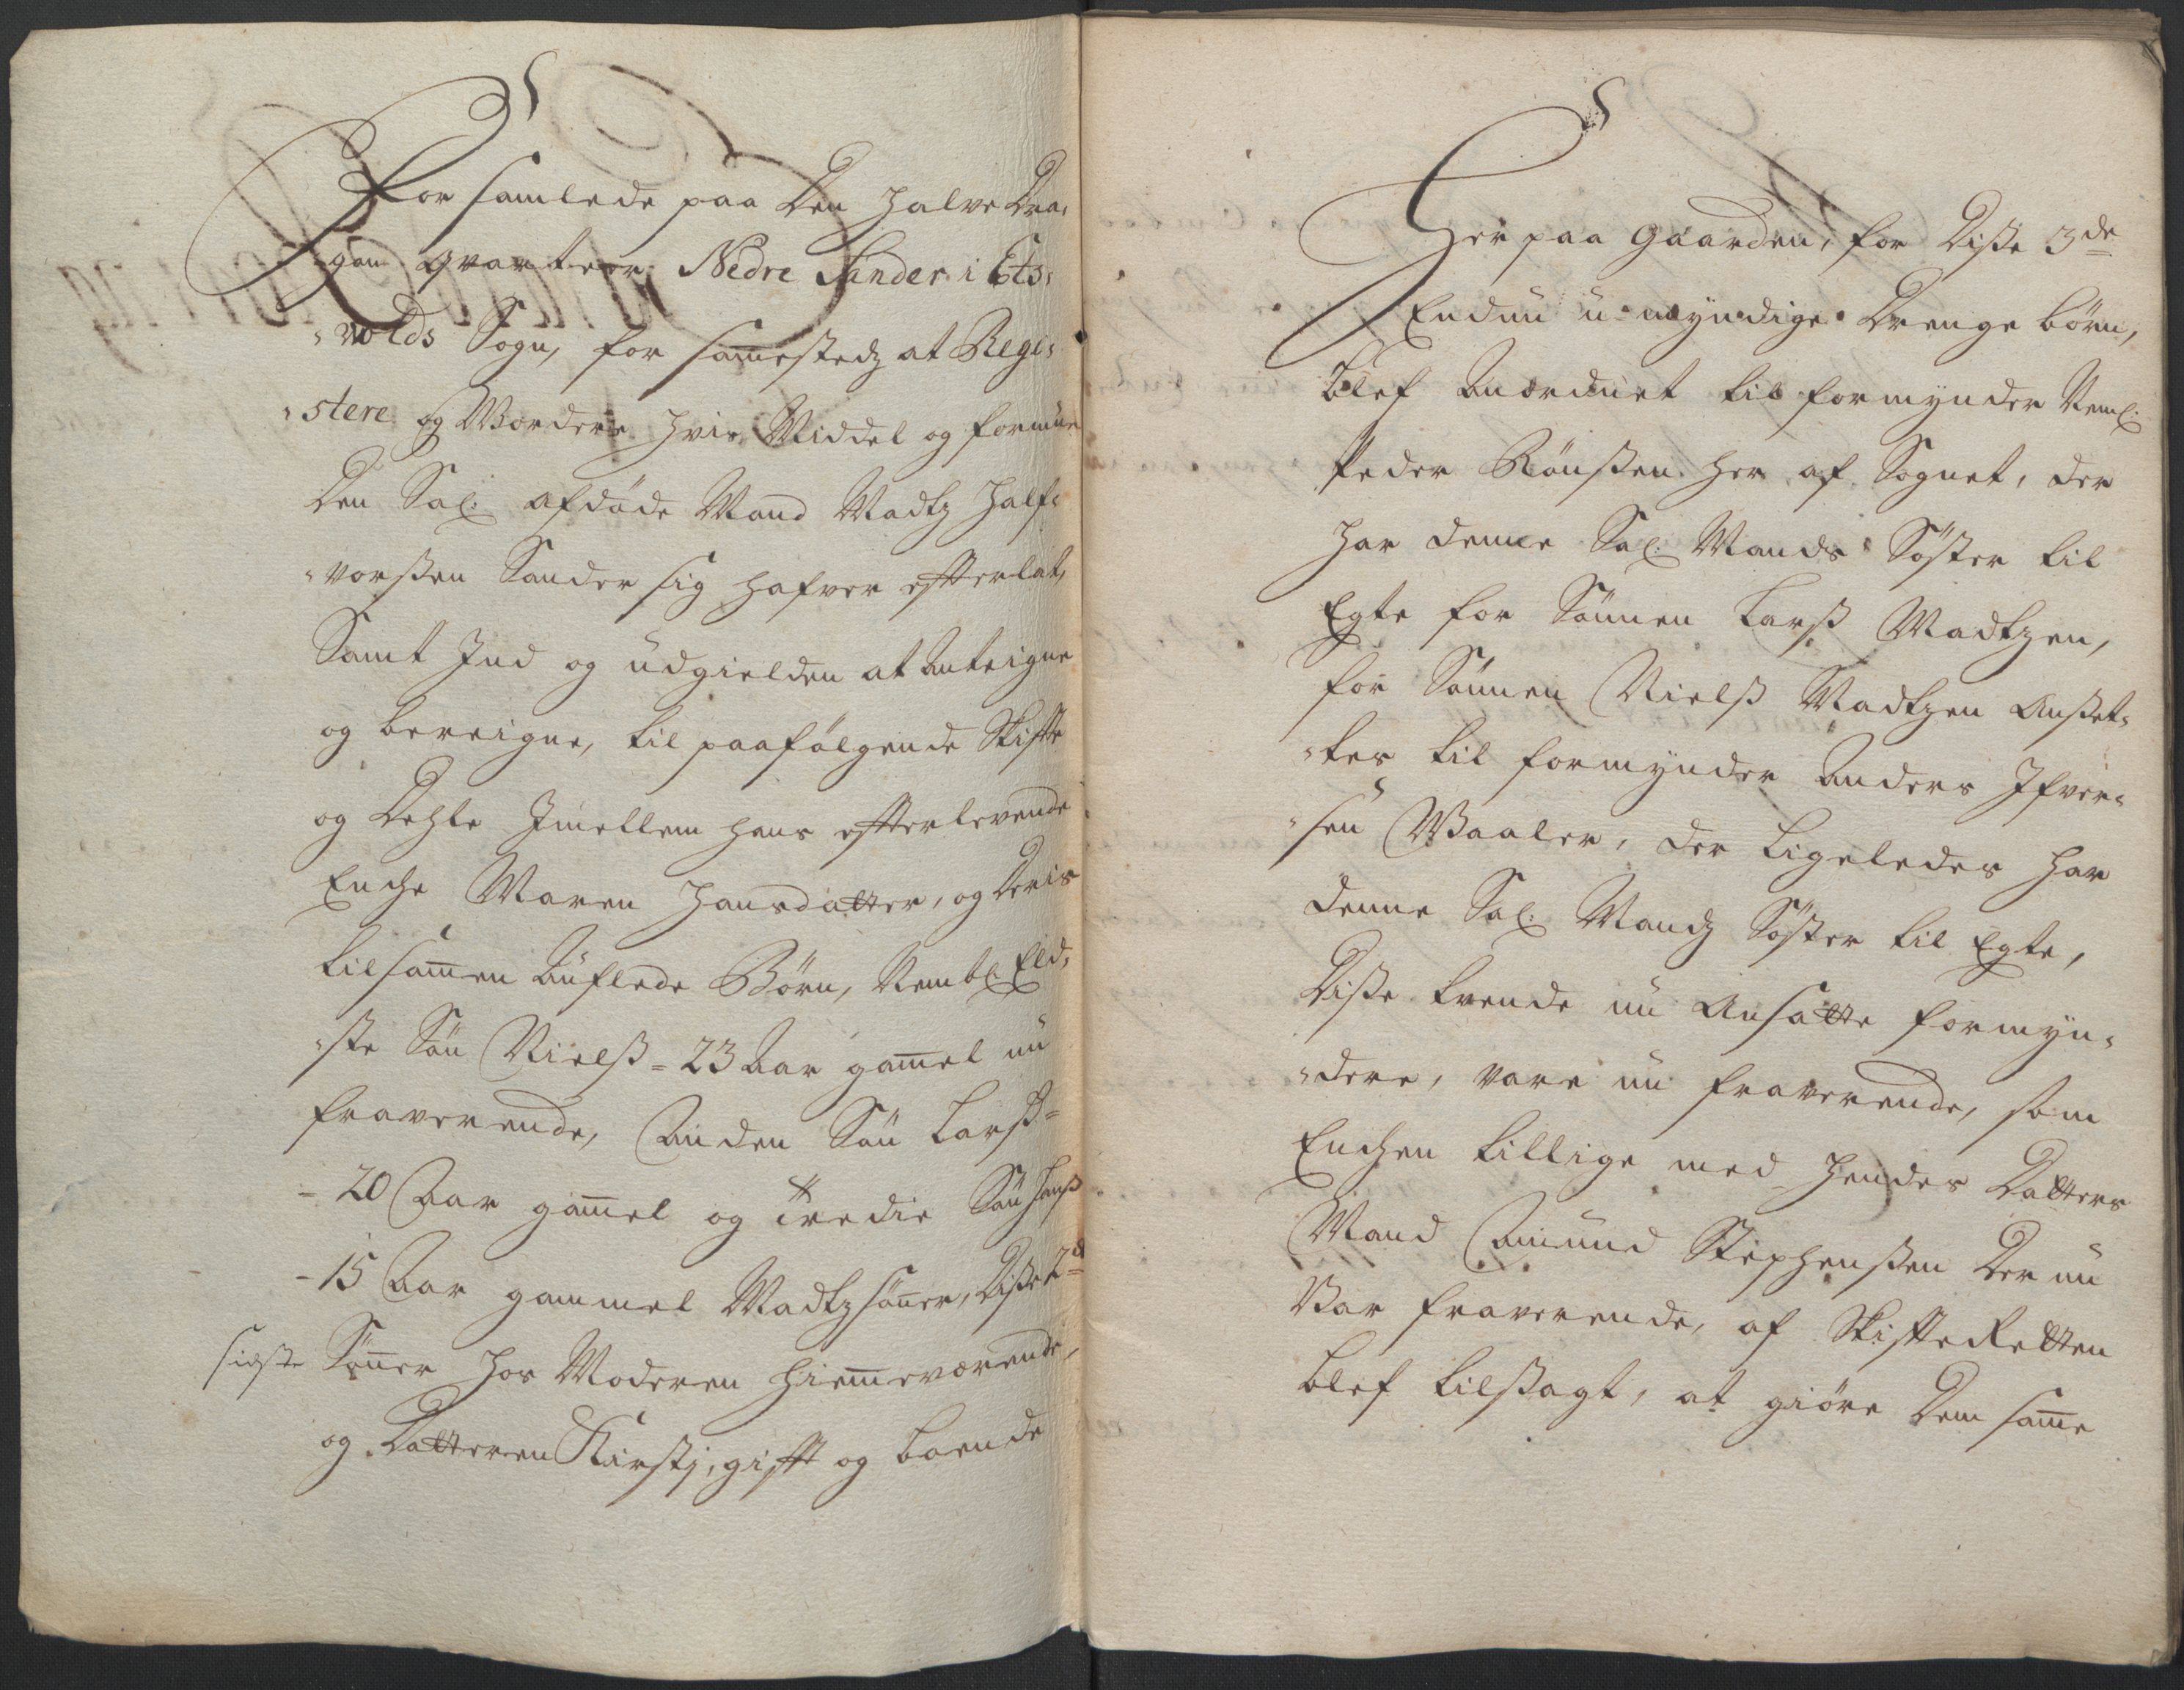 For samlede paa den halve Dra„
„gon qvarteer Nedre Sander i Eids„
„volds Sogn, for sammestedz at Regi„
„stere og Vordere hvis Middel og formue
den Sal: afdöde Mand Madtz Half„
„vorßen Sander sig hafver efterlat,
Samt Ind og udgielden at Anteigne
og bereigne, til paafölgende Skifte
og Dehle Imellem hans efterlevende
Enche Maren Hansdatter, og deris
tilsammen Auflede Börn, Nembl: Eld„
„ste Sön Nielß - 23 Aar gammel nu
fraverende, Anden Sön Larß -
- 20 Aar gammel og tredie Sön Hanß
- 15 Aar gammel Madtzsönner, Diße 2de
sidste Sönner hos Moderen hiemmeværende,
og Datteren Kirstj, gift og boende
Her paa Gaarden, for Diße 3de
Endnu u-myndige Drenge börn,
blef Anordnet til formynder Neml:
Peder Rönsten her af Sognet, der
har denne Sal: Mands Söster til
Egte for Sönnen Larß Madtzen,
for Sönnen Nielß Madtzen Anßet„
„tes til formynder Anders Ifver„
„sen Waaler, der ligeledes har
denne Sal: Mandz Söster til Egte,
Diße tvende nu Ansatte formyn„
„dere, vare nu fraverende, som
Enchen tillige med hendes Datters
Mand Amund Stephenßen der nu
Var fraverende, af SkifteRetten
blef tilßagt, at giöre dem samme